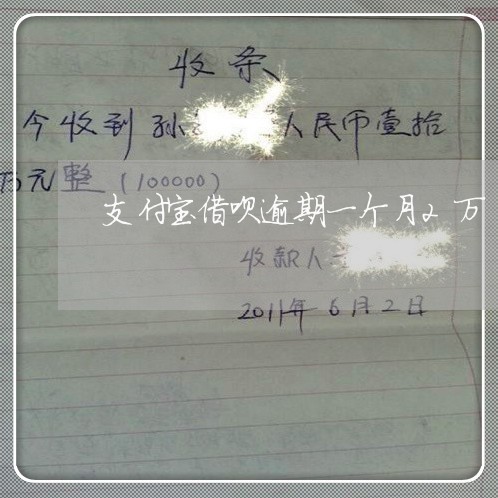 收条
今收到孙人民币壹拾
万元整(100000)
支付宝借呗逾期一个月2万
收款人
2011年6月2日